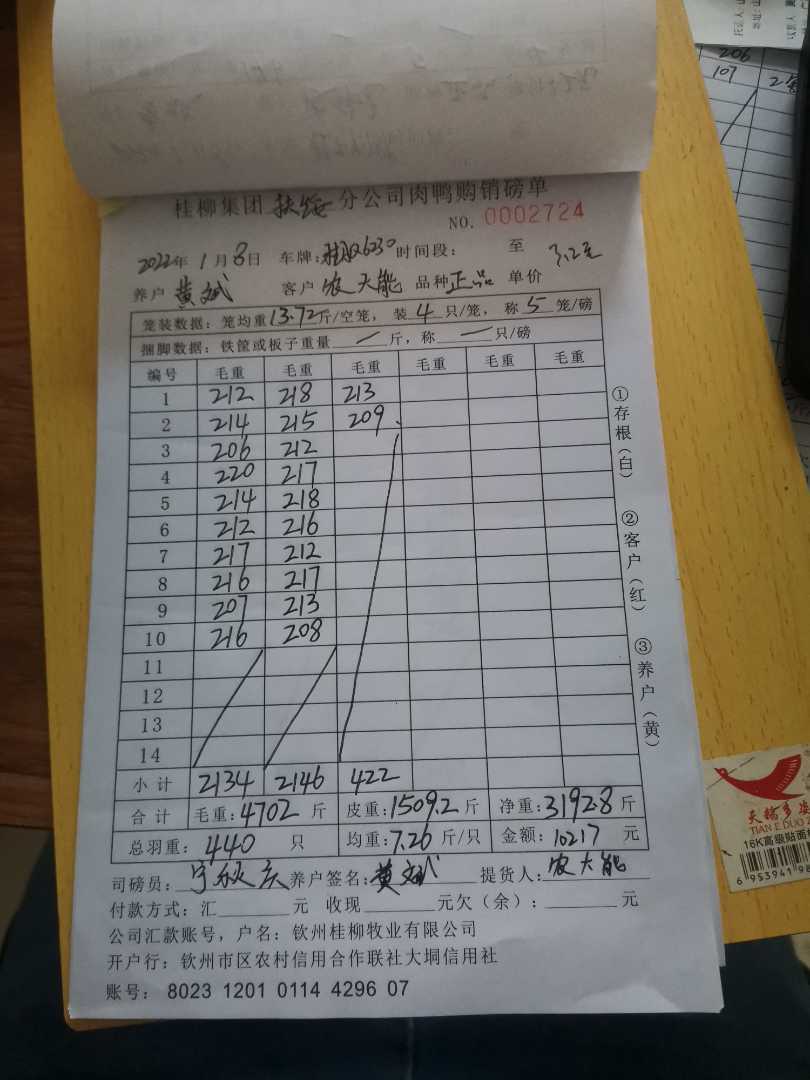 206
107
桂柳集团 扶绥 分公司肉鸭购销磅单
NO. 0002724
2022年 1月 8日 车牌: 时间段: 至 3.2元
养户 黄斌 客户 农大能 品种 正品 单价
笼装数据: 笼均重 13.72 斤/空笼, 装 4 只/笼, 称 5 笼/磅
捆脚数据: 铁筐或板子重量 — 斤, 称 — 只/磅
编号 毛重 毛重 毛重 毛重 毛重 毛重
1 212 218 213
2 214 215 209
3 206 212
4 220 217
5 214 218
6 212 216
7 217 212
8 216 217
9 207 213
10 216 208
11
12
13
14
小计 2134 2146 422
合计 毛重: 4702 斤 皮重: 1509.2 斤 净重: 3192.8 斤
总羽重: 440 只 均重: 7.26 斤/只 金额: 10217 元
司磅员: 养户签名: 黄斌 提货人: 农大能
付款方式: 汇 元 收现 元欠(余): 元
公司汇款账号, 户名: 钦州桂柳牧业有限公司
开户行: 钦州市区农村信用合作联社大垌信用社
账号: 8023 1201 0114 4296 07
①存根(白)
②客户(红)
③养户(黄)
天鹅多姿
TIAN E DUO
16K高级贴面
6 953941 98